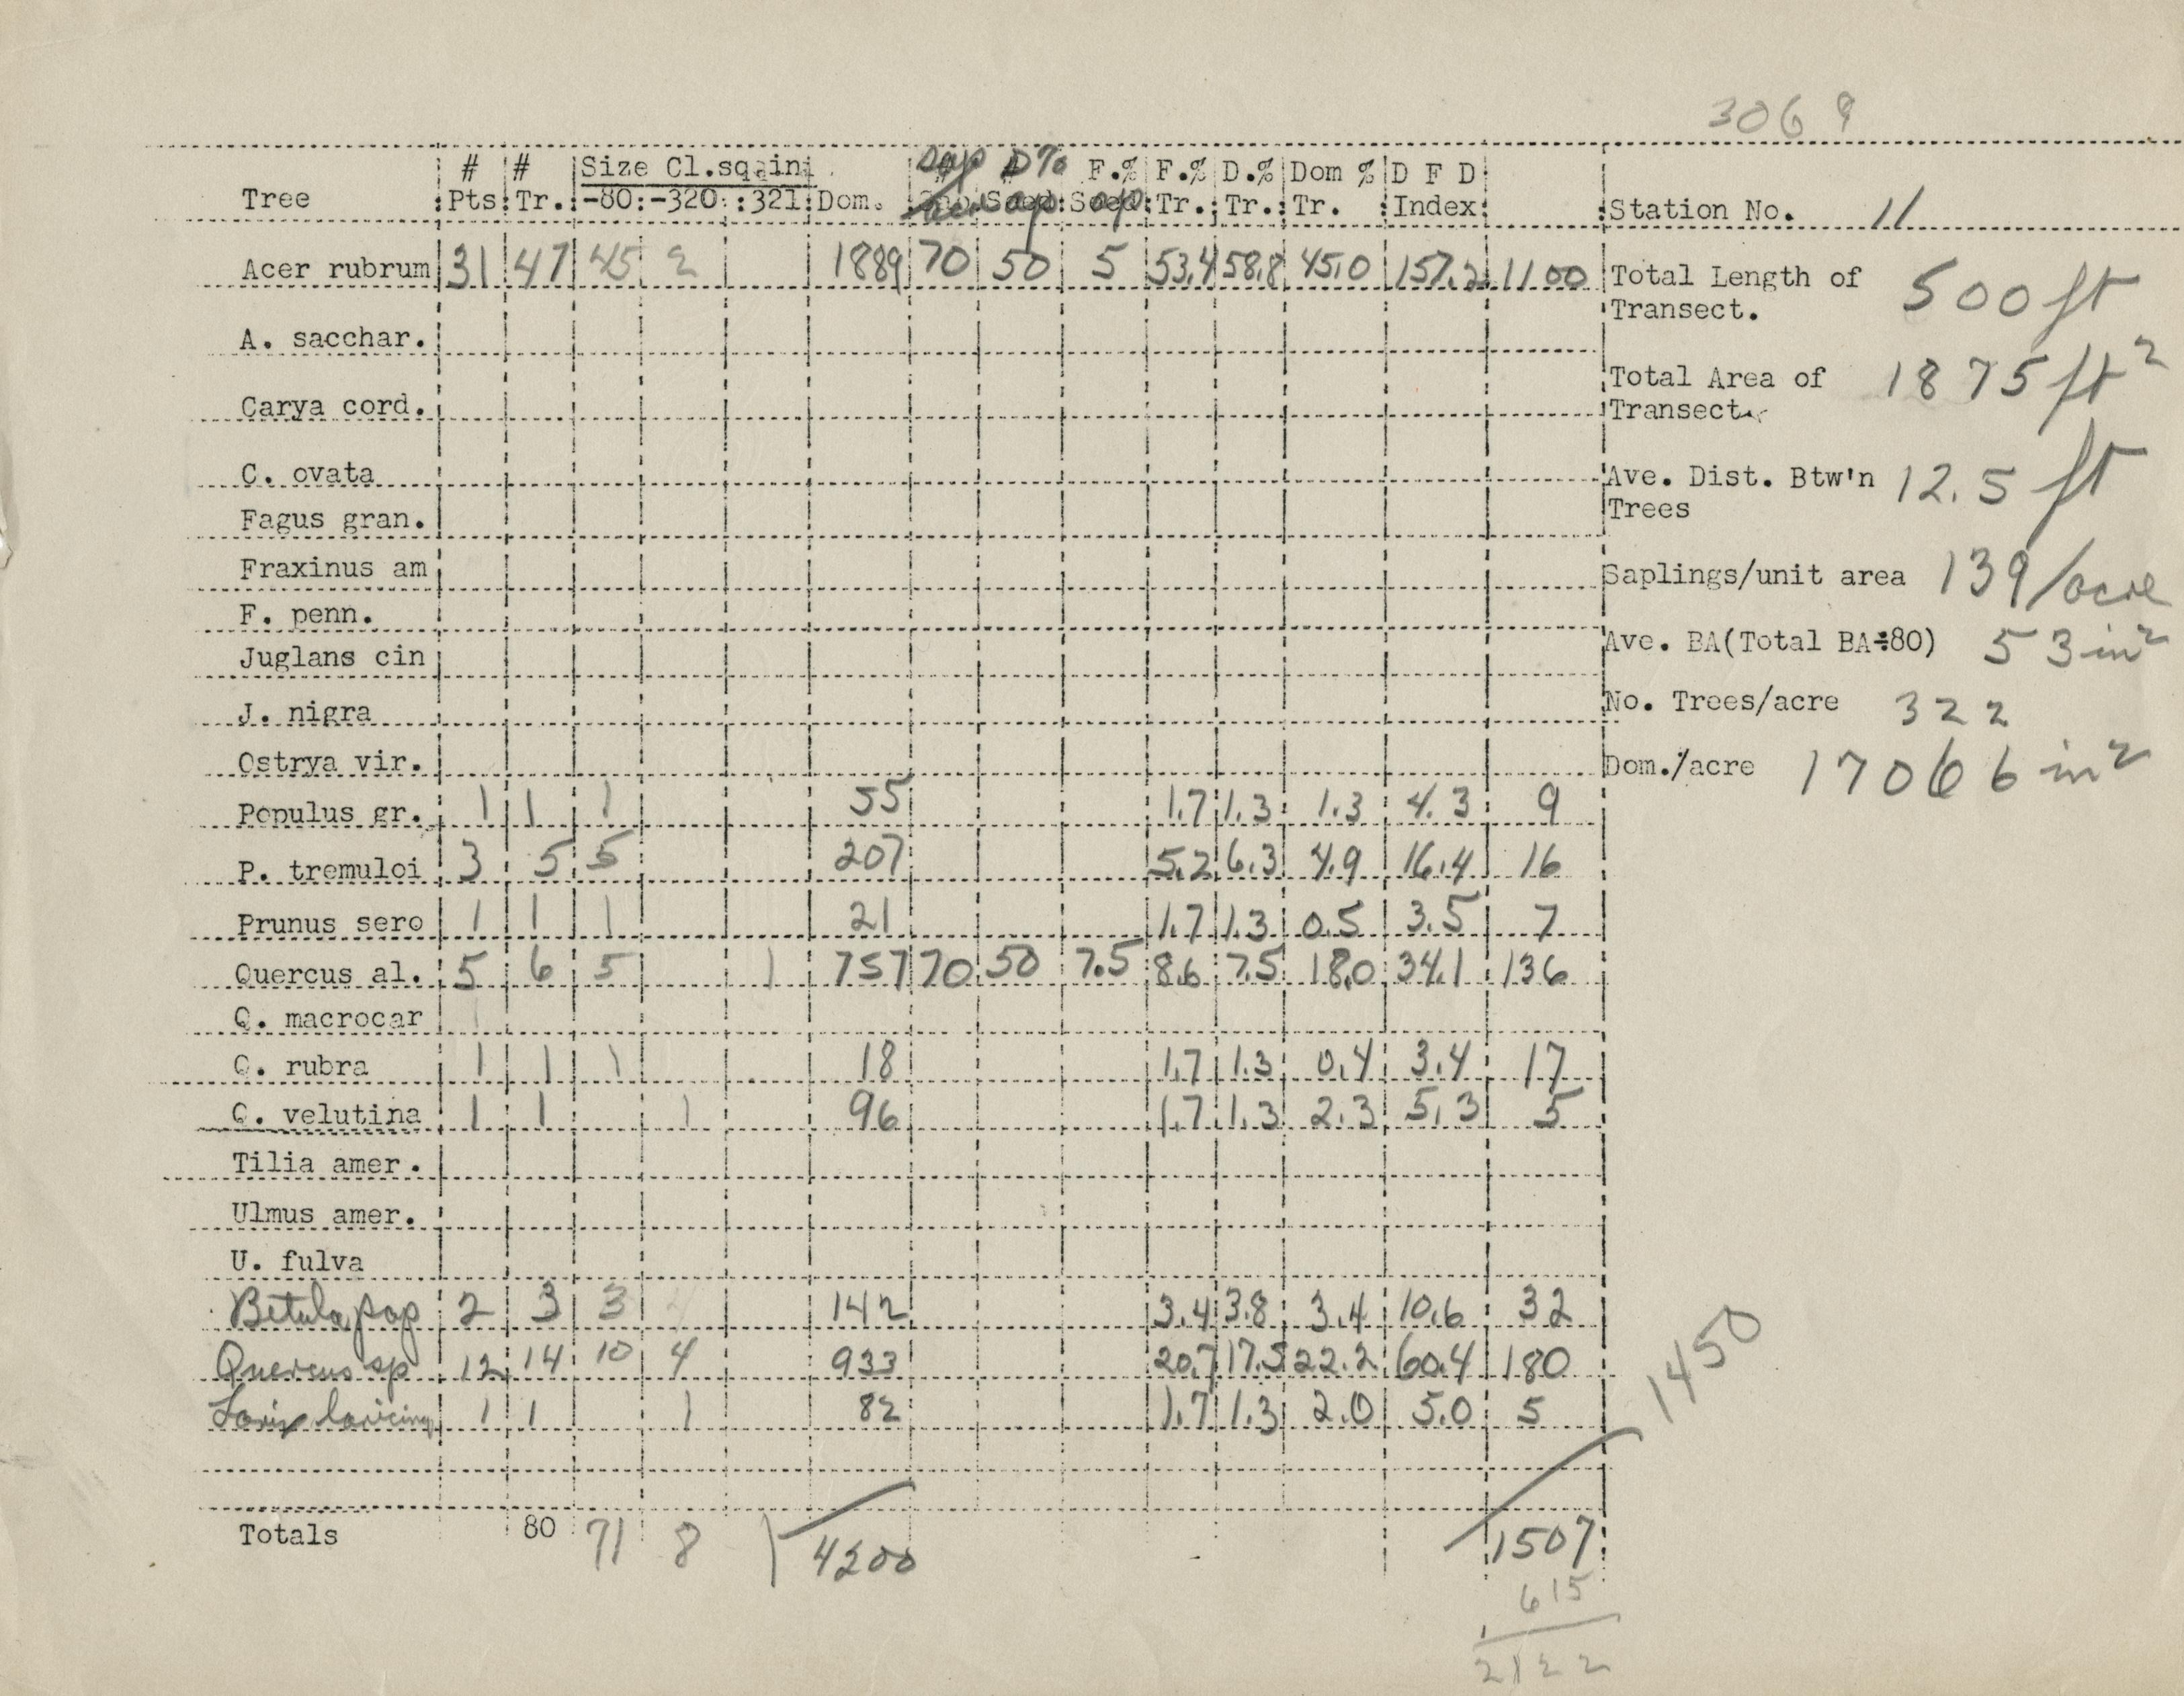 3069
# # Size Cl.sq.in. Sap D% F.% F.% D.% Dom % D F D
Tree Pts Tr. -80: -320: :321: Dom. Sap Sap Tr. Tr. Tr. Index Station No. 11
Acer rubrum 31 47 45 2 1889 70 50 5 53.4 58.8 45.0 157.2 1100 Total Length of 500 ft
Transect.
A. sacchar.
Total Area of 1875 ft²
Carya cord. Transect.
C. ovata Ave. Dist. Btw'n 12.5 ft
Fagus gran. Trees
Fraxinus am Saplings/unit area 139/acre
F. penn.
Juglans cin Ave. BA(Total BA÷80) 53 in²
J. nigra No. Trees/acre 322
Ostrya vir. Dom./acre 17066 in²
Populus gr. 1 1 1 55 1.7 1.3 1.3 4.3 9
P. tremuloi 3 5 5 207 5.2 6.3 4.9 16.4 16
Prunus sero 1 1 1 21 1.7 1.3 0.5 3.5 7
Quercus al. 5 6 5 1 757 70 50 7.5 8.6 7.5 18.0 34.1 136
Q. macrocar
Q. rubra 1 1 1 18 1.7 1.3 0.4 3.4 17
Q. velutina 1 1 1 96 1.7 1.3 2.3 5.3 5
Tilia amer.
Ulmus amer.
U. fulva
Betula pap 2 3 3 142 3.4 3.8 3.4 10.6 32
Quercus sp 12 14 10 4 933 20.7 17.5 22.2 60.4 180
Larix laricina 1 1 1 82 1.7 1.3 2.0 5.0 5
1450
Totals 80 71 8 1 4200 1507
615
2122